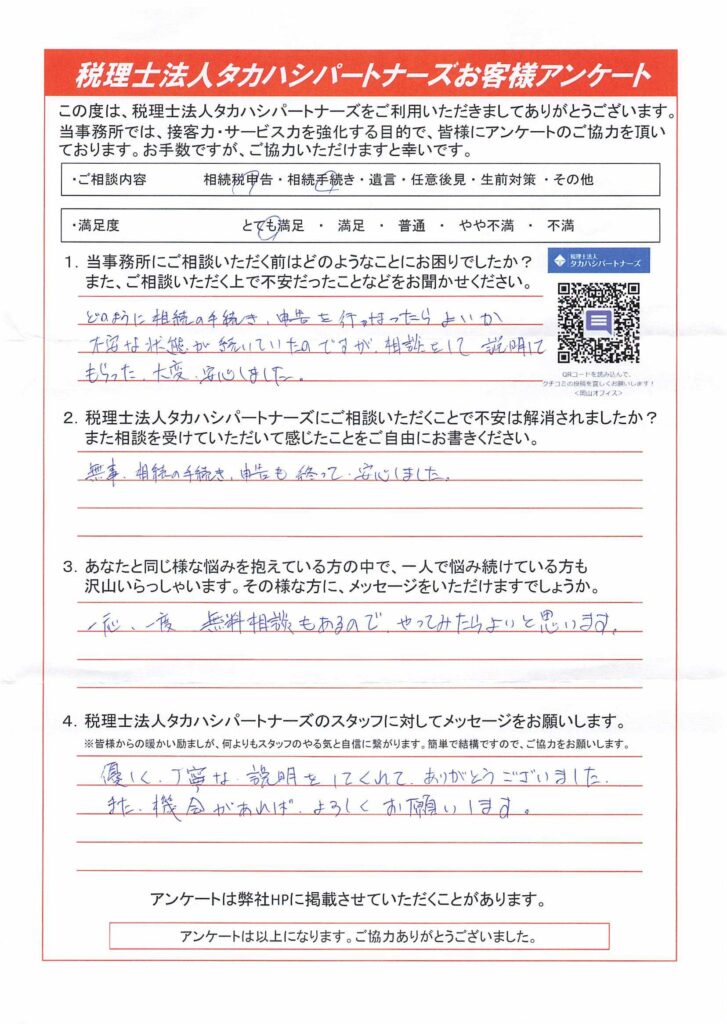 税理士法人タカハシパートナーズお客様アンケート
この度は、税理士法人タカハシパートナーズをご利用いただきましてありがとうございます。
当事務所では、接客力・サービス力を強化する目的で、皆様にアンケートのご協力を頂い
ております。お手数ですが、ご協力いただけますと幸いです。
・ご相談内容 相続税申告・相続手続き・遺言・任意後見・生前対策・その他
・満足度 とても満足 ・ 満足 ・ 普通 ・ やや不満 ・ 不満
1．当事務所にご相談いただく前はどのようなことにお困りでしたか？
また、ご相談いただく上で不安だったことなどをお聞かせください。
税理士法人
タカハシパートナーズ
どのように相続の手続き、申告を行なったらよいか
不安な状態が続いていたのですが、相談をして説明して
もらった、大変、安心しました。
QRコードを読み込んで、
クチコミの投稿を宜しくお願いします！
<岡山オフィス>
2．税理士法人タカハシパートナーズにご相談いただくことで不安は解消されましたか？
また相談を受けていただいて感じたことをご自由にお書きください。
無事、相続の手続き、申告も終って、安心しました。
3．あなたと同じ様な悩みを抱えている方の中で、一人で悩み続けている方も
沢山いらっしゃいます。その様な方に、メッセージをいただけますでしょうか。
一応、一度 無料相談もあるので、やってみたらよいと思います。
4．税理士法人タカハシパートナーズのスタッフに対してメッセージをお願いします。
※皆様からの暖かい励ましが、何よりもスタッフのやる気と自信に繋がります。簡単で結構ですので、ご協力をお願いします。
優しく、丁寧な説明をしてくれて、ありがとうございました。
また、機会があれば、よろしくお願いします。
アンケートは弊社HPに掲載させていただくことがあります。
アンケートは以上になります。ご協力ありがとうございました。